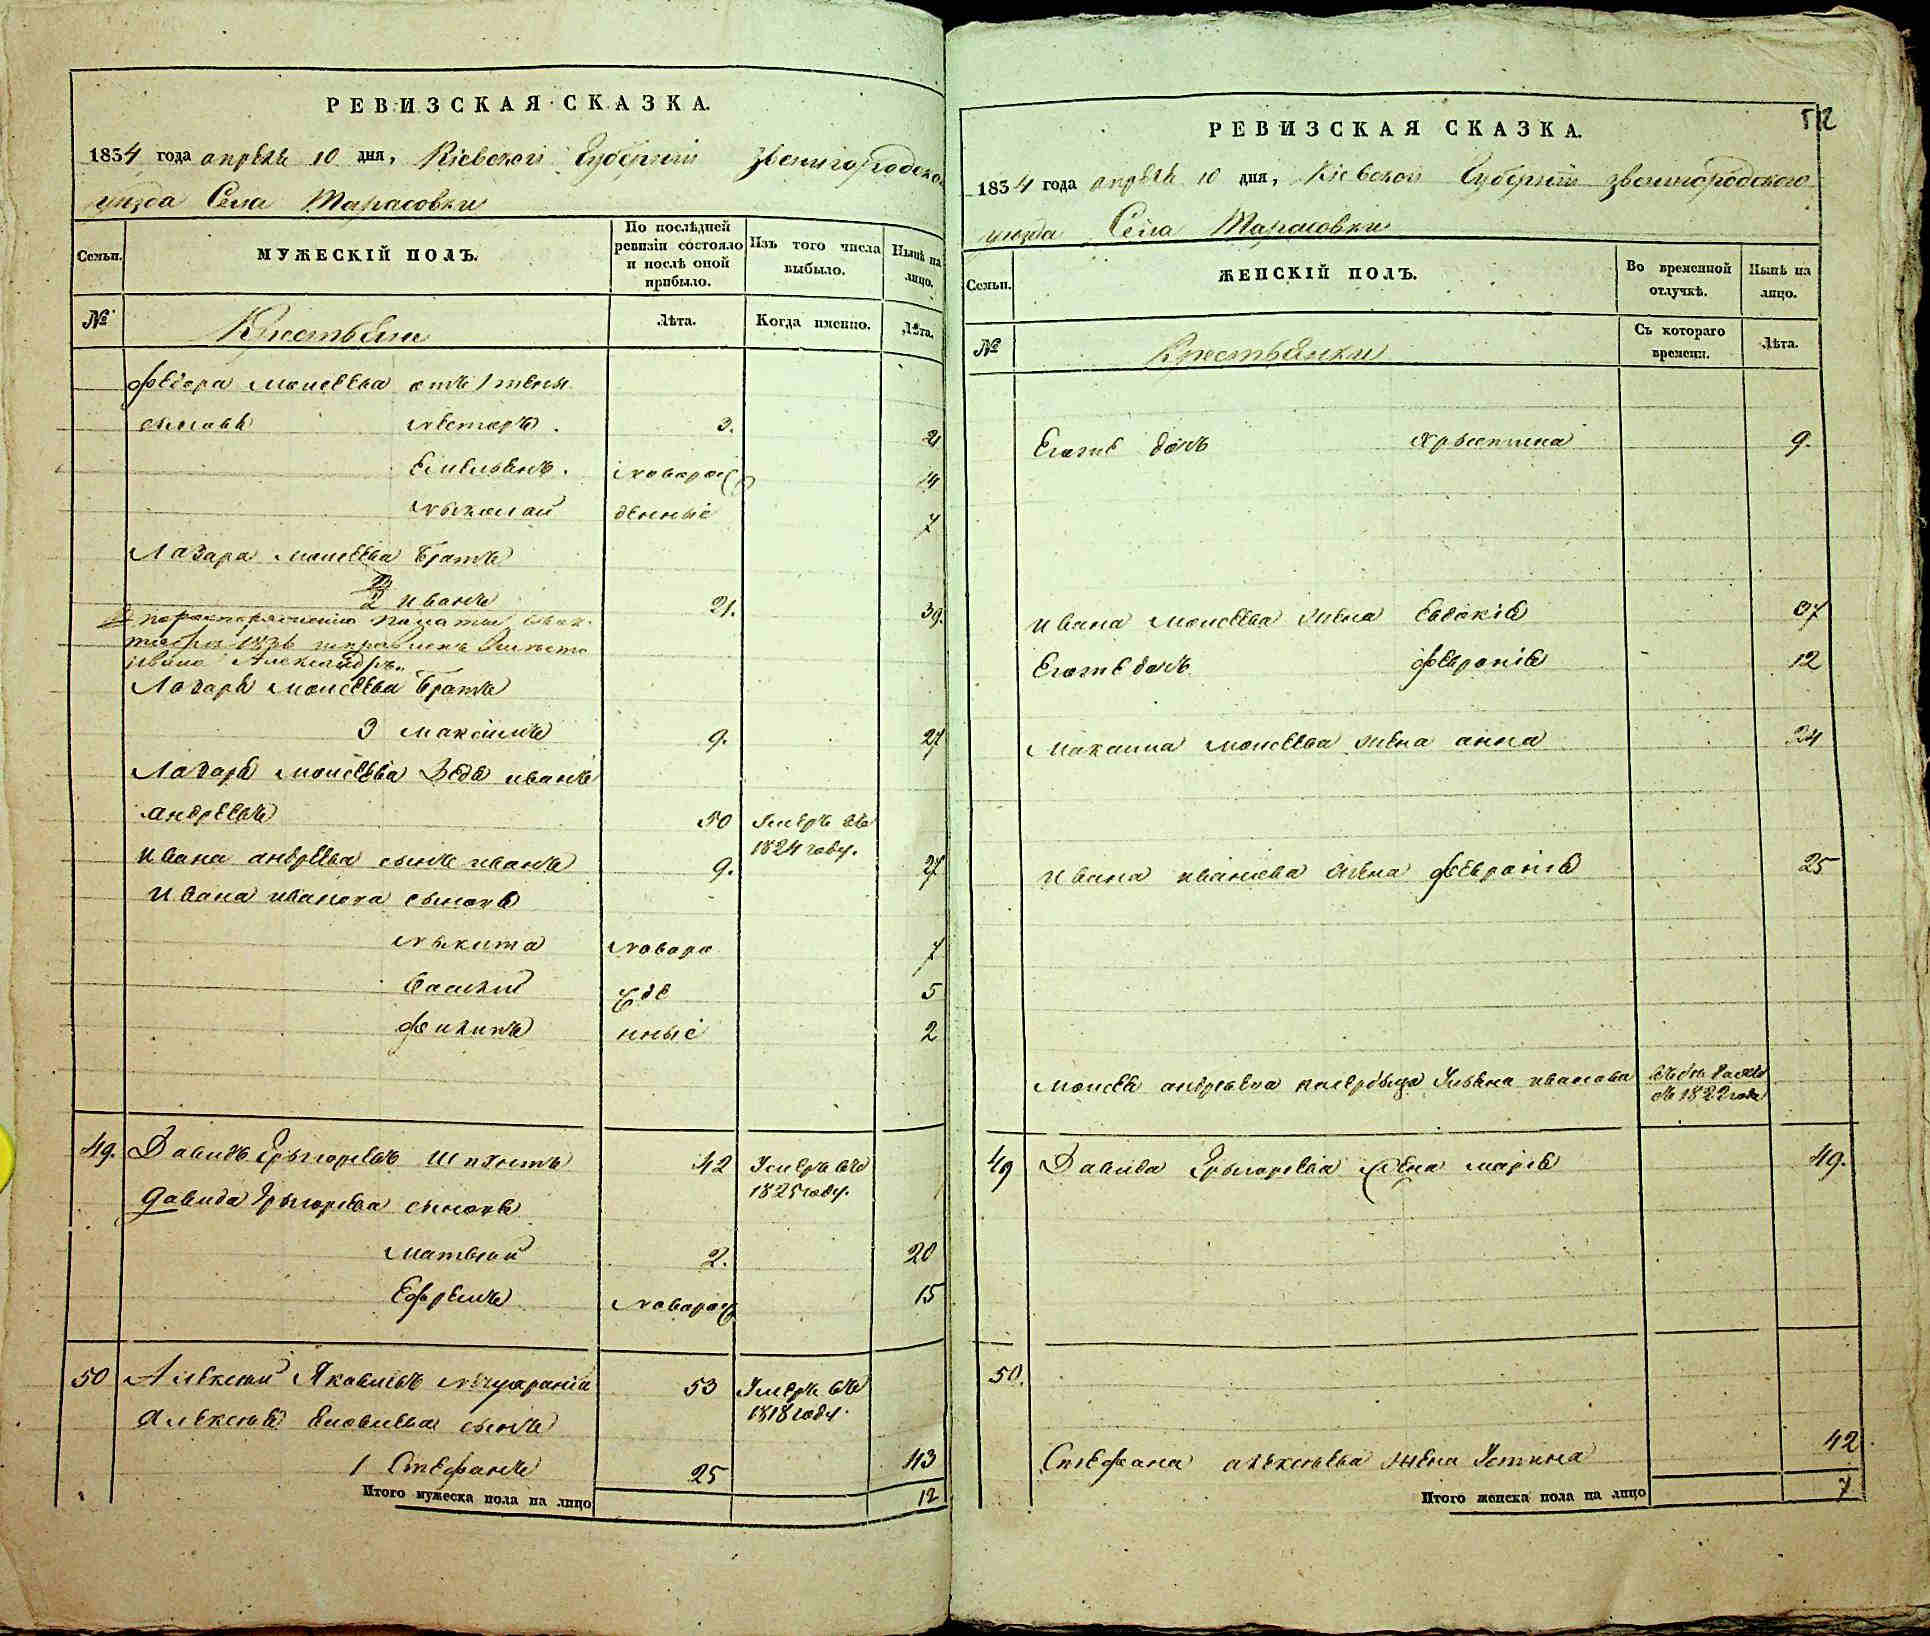 РЕВИЗСКАЯ СКАЗКА.
1834 года апреля 10 дня, Кіевской Губерніи Звенигородско
уезда Села Тарасовки
Семьи.
МУЖЕСКІЙ ПОЛЪ.
По послѣдней ревизіи состояло и послѣ оной прибыло.
Изъ того числа выбыло.
Нынѣ на лицо.
№
Крестьяне
Лѣта.
Когда именно.
Лѣта.
Федора Моисеева отъ 1 жены
сыновя Нестеръ. 3. 21
Емельянъ. новорож 14
Николай денные 7
Лазаря Моисеева братъ
2 Иванъ 21. 39.
по распоряжению палаты
1836
Ивана Александръ
Лазаря Моисеева братъ
3 Максимъ 9. 27
Лазаря Моисеева Дядя Иванъ
Андреевъ 50 Умеръ въ
1824 году.
Ивана Андреева сынъ Иванъ 9. 27
Ивана Иванова сыновя
Никита новоро 7
Василий жде 5
Филипъ нные 2
49. Давидъ Григорьевъ 42 Умеръ въ
1825 году.
Давида Григорьева сыновя
Матвей 2. 20
Ефремъ новорож 15
50 Алексей Яковлевъ 53 Умеръ въ
1818 году.
Алексея Яковлева сынъ
1 Стефанъ 25 43
Итого мужеска пола на лицо 12
512
РЕВИЗСКАЯ СКАЗКА.
1834 года апреля 10 дня, Кіевской Губерніи Звенигородского
уезда Села Тарасовки
Семьи.
ЖЕНСКІЙ ПОЛЪ.
Во временной отлучкѣ.
Нынѣ на лицо.
№
Крестьянки
Съ котораго времени.
Лѣта.
Егоже дочь Христина 9.
Ивана Моисеева жена Евдокія 37
Егоже дочь Феврония 12
Максима Моисеева жена Анна 24
Ивана Иванова жена Феврония 25
Моисея Андреева Ульяна Иванова
съ 1822 года
49 Давида Григорьева жена Марія 49.
50.
Стефана Алексеева жена Устина 42
Итого женска пола на лицо 7